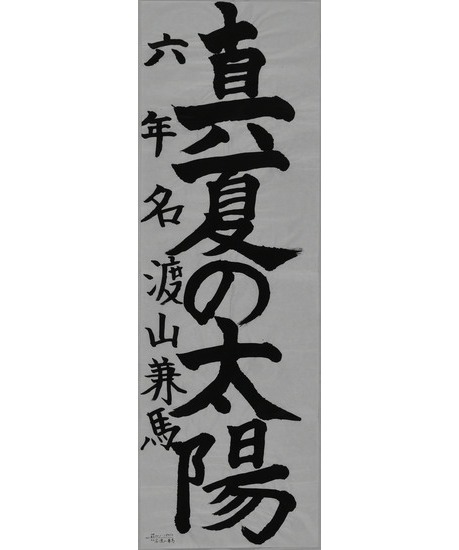 真夏の太陽
六年名渡山兼馬